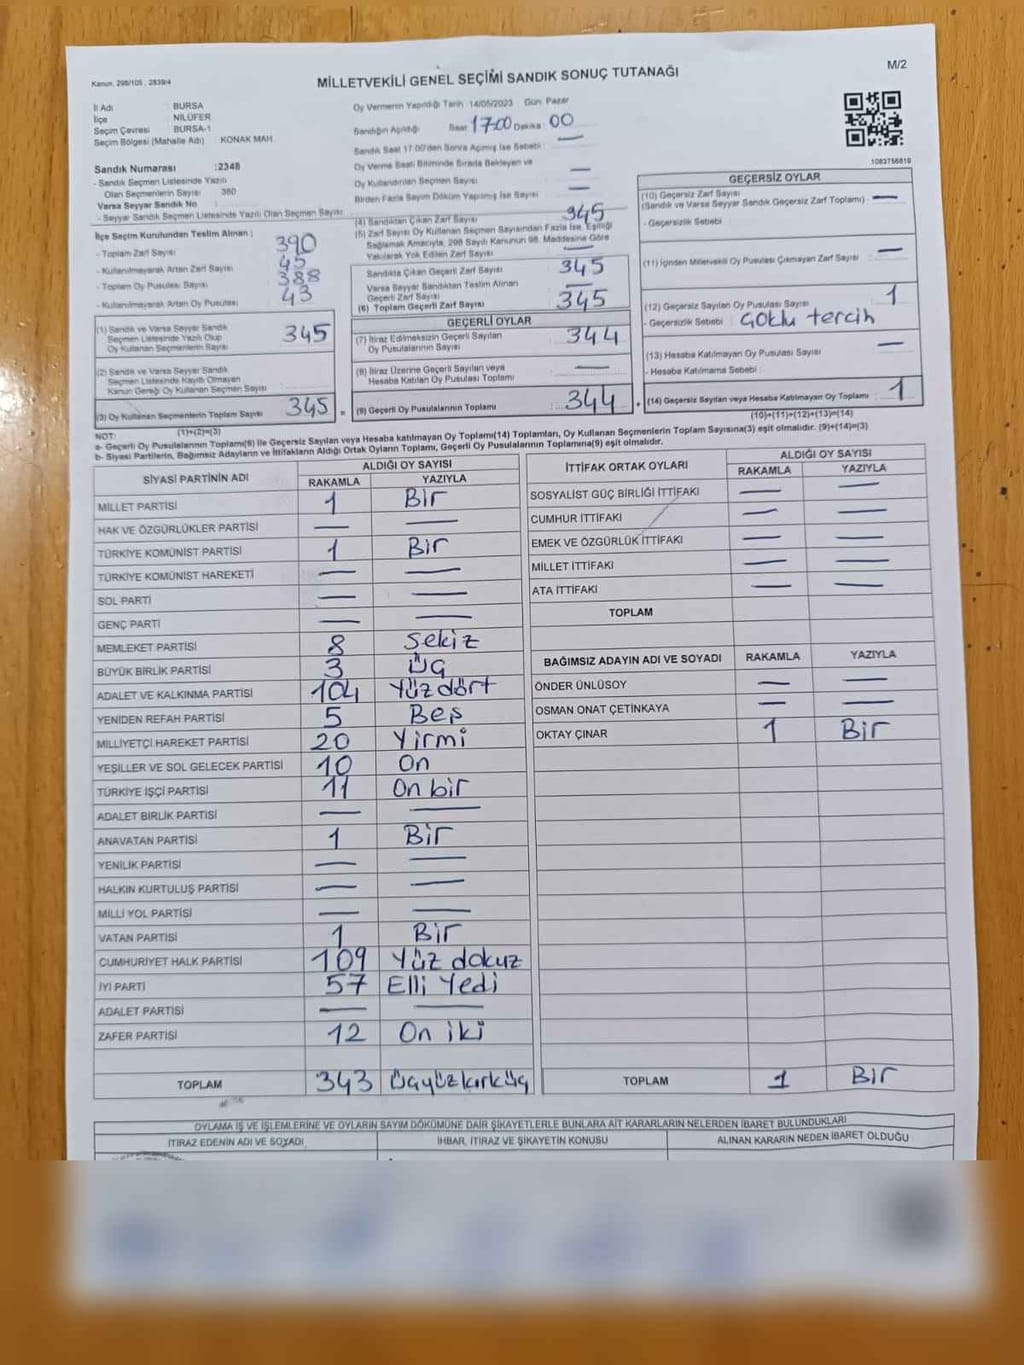 Kanun, 298/105 , 2839/4
MİLLETVEKİLİ GENEL SEÇİMİ SANDIK SONUÇ TUTANAĞI
M/2
İl Adı : BURSA
İlçe : NİLÜFER
Seçim Çevresi : BURSA-1
Seçim Bölgesi (Mahalle Adı) : KONAK MAH.
Sandık Numarası : 2348
- Sandık Seçmen Listesinde Yazılı
Olan Seçmenlerin Sayısı : 380
Varsa Seyyar Sandık No :
- Seyyar Sandık Seçmen Listesinde Yazılı Olan Seçmen Sayısı :
Oy Vermenin Yapıldığı Tarih 14/05/2023 Gün: Pazar
Sandığın Açıldığı Saat 17:00 Dakika : 00
Sandık Saat 17.00'den Sonra Açılmış İse Sebebi : —
Oy Verme Saati Bitiminde Sırada Bekleyen ve
Oy Kullandırılan Seçmen Sayısı : —
Birden Fazla Sayım Döküm Yapılmış İse Sayısı : —
1083756619
İlçe Seçim Kurulundan Teslim Alınan :
- Toplam Zarf Sayısı : 390
- Kullanılmayarak Artan Zarf Sayısı : 45
- Toplam Oy Pusulası Sayısı : 388
- Kullanılmayarak Artan Oy Pusulası : 43
(1) Sandık ve Varsa Seyyar Sandık
Seçmen Listesinde Yazılı Olup
Oy Kullanan Seçmenlerin Sayısı 345
(2) Sandık ve Varsa Seyyar Sandık
Seçmen Listesinde Kayıtlı Olmayan
Kanun Gereği Oy Kullanan Seçmen Sayısı :
(3) Oy Kullanan Seçmenlerin Toplam Sayısı 345 =
(1)+(2)=(3)
(4) Sandıktan Çıkan Zarf Sayısı : 345
(5) Zarf Sayısı Oy Kullanan Seçmen Sayısından Fazla İse, Eşitliği
Sağlamak Amacıyla, 298 Sayılı Kanunun 98. Maddesine Göre
Yakılarak Yok Edilen Zarf Sayısı : —
Sandıkta Çıkan Geçerli Zarf Sayısı : 345
Varsa Seyyar Sandıktan Teslim Alınan
Geçerli Zarf Sayısı : —
(6) Toplam Geçerli Zarf Sayısı : 345
GEÇERLİ OYLAR
(7) İtiraz Edilmeksizin Geçerli Sayılan
Oy Pusulalarının Sayısı : 344
(8) İtiraz Üzerine Geçerli Sayılan veya
Hesaba Katılan Oy Pusulası Toplamı : —
(9) Geçerli Oy Pusulalarının Toplamı : 344
GEÇERSİZ OYLAR
(10) Geçersiz Zarf Sayısı
(Sandık ve Varsa Seyyar Sandık Geçersiz Zarf Toplamı) : —
- Geçersizlik Sebebi :
(11) İçinden Milletvekili Oy Pusulası Çıkmayan Zarf Sayısı : —
(12) Geçersiz Sayılan Oy Pusulası Sayısı : 1
- Geçersizlik Sebebi : Çoklu tercih
(13) Hesaba Katılmayan Oy Pusulası Sayısı : —
- Hesaba Katılmama Sebebi :
(14) Geçersiz Sayılan veya Hesaba Katılmayan Oy Toplamı : 1
(10)+(11)+(12)+(13)=(14)
NOT:
a- Geçerli Oy Pusulalarının Toplamı(9) ile Geçersiz Sayılan veya Hesaba katılmayan Oy Toplamı(14) Toplamları, Oy Kullanan Seçmenlerin Toplam Sayısına(3) eşit olmalıdır. (9)+(14)=(3)
b- Siyasi Partilerin, Bağımsız Adayların ve İttifakların Aldığı Ortak Oyların Toplamı, Geçerli Oy Pusulalarının Toplamına(9) eşit olmalıdır.
SİYASİ PARTİNİN ADI ALDIĞI OY SAYISI
RAKAMLA YAZIYLA
MİLLET PARTİSİ 1 Bir
HAK VE ÖZGÜRLÜKLER PARTİSİ — —
TÜRKİYE KOMÜNİST PARTİSİ 1 Bir
TÜRKİYE KOMÜNİST HAREKETİ — —
SOL PARTİ — —
GENÇ PARTİ — —
MEMLEKET PARTİSİ 8 Sekiz
BÜYÜK BİRLİK PARTİSİ 3 Üç
ADALET VE KALKINMA PARTİSİ 104 Yüz dört
YENİDEN REFAH PARTİSİ 5 Beş
MİLLİYETÇİ HAREKET PARTİSİ 20 Yirmi
YEŞİLLER VE SOL GELECEK PARTİSİ 10 On
TÜRKİYE İŞÇİ PARTİSİ 11 On bir
ADALET BİRLİK PARTİSİ — —
ANAVATAN PARTİSİ 1 Bir
YENİLİK PARTİSİ — —
HALKIN KURTULUŞ PARTİSİ — —
MİLLİ YOL PARTİSİ — —
VATAN PARTİSİ 1 Bir
CUMHURİYET HALK PARTİSİ 109 Yüz dokuz
İYİ PARTİ 57 Elli Yedi
ADALET PARTİSİ — —
ZAFER PARTİSİ 12 On iki
TOPLAM 343 Üçyüzkırküç
İTTİFAK ORTAK OYLARI ALDIĞI OY SAYISI
RAKAMLA YAZIYLA
SOSYALİST GÜÇ BİRLİĞİ İTTİFAKI — —
CUMHUR İTTİFAKI — —
EMEK VE ÖZGÜRLÜK İTTİFAKI — —
MİLLET İTTİFAKI — —
ATA İTTİFAKI — —
TOPLAM
BAĞIMSIZ ADAYIN ADI VE SOYADI RAKAMLA YAZIYLA
ÖNDER ÜNLÜSOY — —
OSMAN ONAT ÇETİNKAYA — —
OKTAY ÇINAR 1 Bir
TOPLAM 1 Bir
OYLAMA İŞ VE İŞLEMLERİNE VE OYLARIN SAYIM DÖKÜMÜNE DAİR ŞİKAYETLERLE BUNLARA AİT KARARLARIN NELERDEN İBARET BULUNDUKLARI
İTİRAZ EDENİN ADI VE SOYADI İHBAR, İTİRAZ VE ŞİKAYETİN KONUSU ALINAN KARARIN NEDEN İBARET OLDUĞU